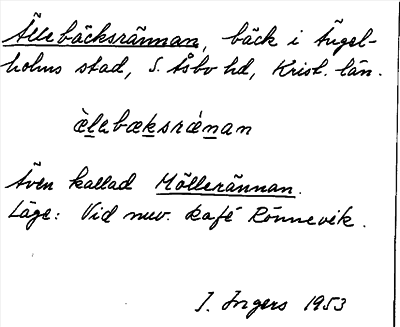 Ällebäcksrännan, bäck i Ängel-
holms stad, S. Åsbo hd, Krist. län.
ä̀lebæksrǽnan
Även kallad Möllerännan.
Läge: Vid nuv. kafé Rönnevik.
I. Ingers 1953